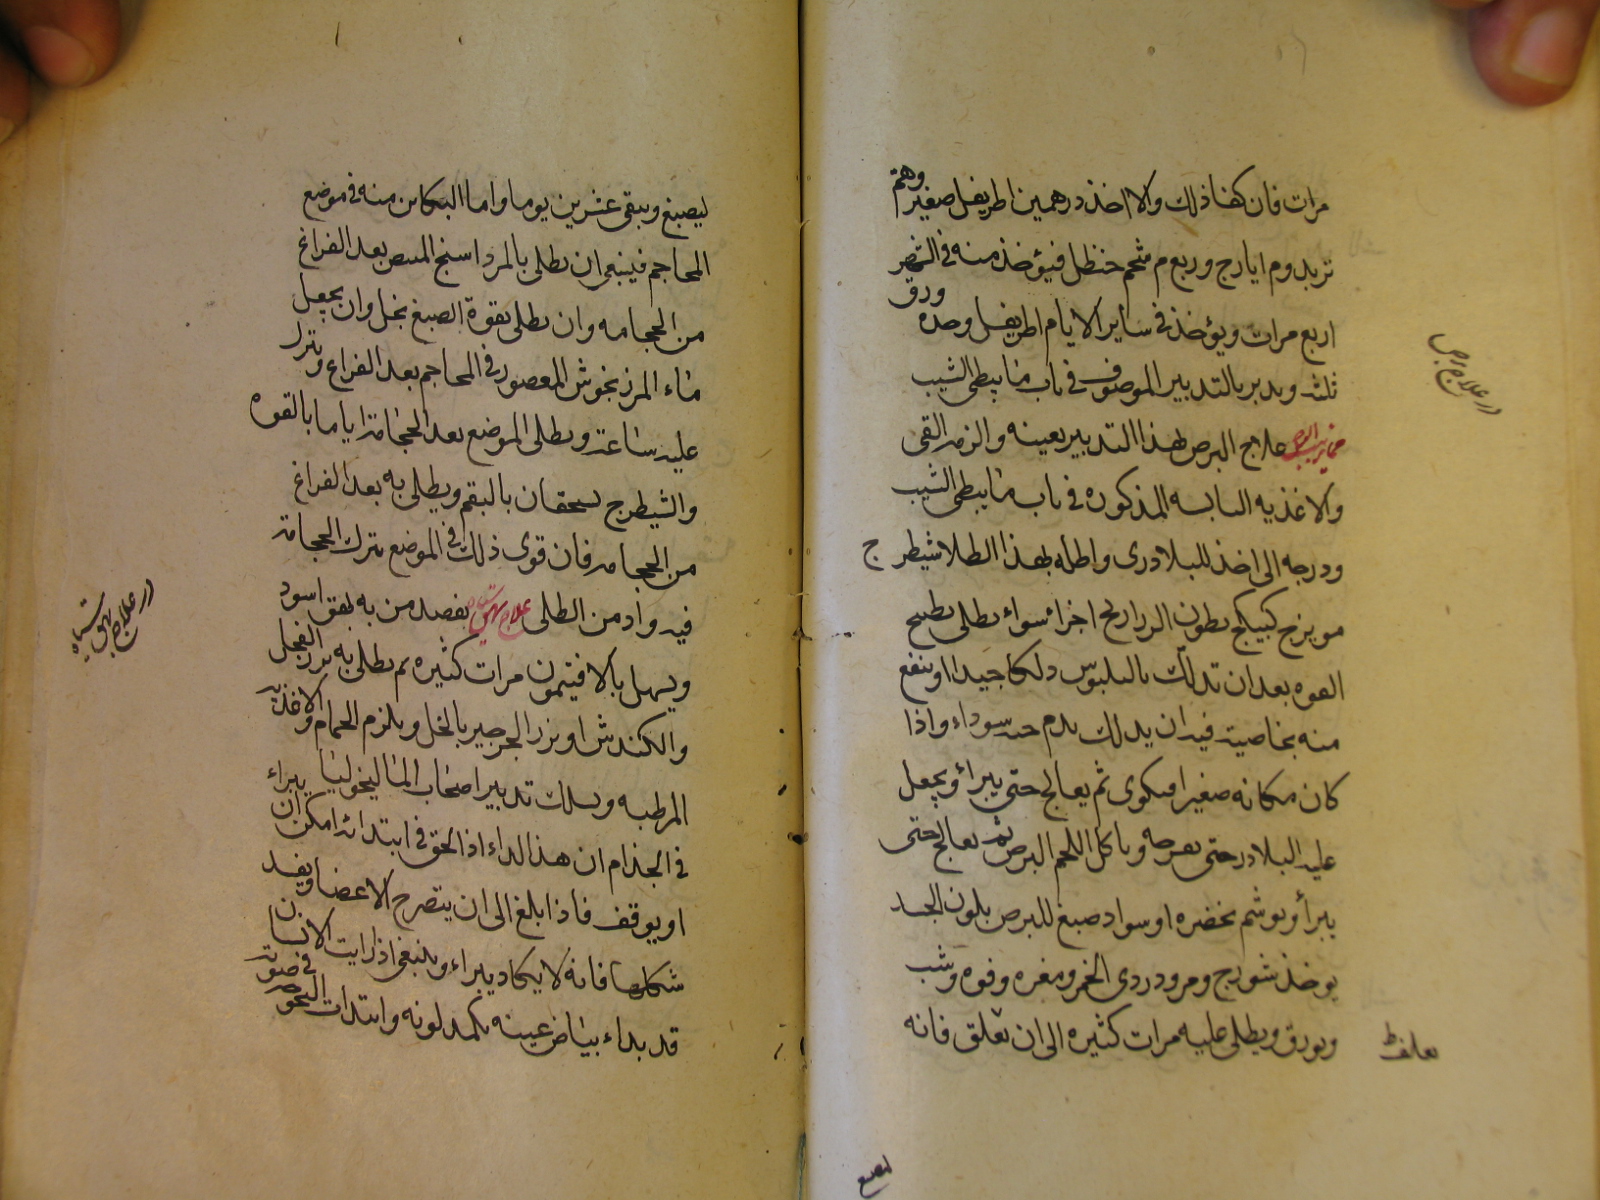 مرات فان كفا ذلك والا اخذ درهمين اطريفل صغير
تربد وم ايارج وربع م شحم حنظل فيؤخذ منه في الشهر
اربع مرات ويؤخذ في ساير الايام اطريفل وحده ورق
ثلثه ويدبر بالتدبير الموصوف في باب ما يبطى الشيب
علاج البرص بهذا التدبير بعينه والزمه القى
والاغذيه اليابسه المذكوره في باب ما يبطى الشيب
ودرجه الى اخذ للبلادرى واطله بهذا الطلا شيطرج
مويزج كبيكج بطون الذراريح اجزا سواء يطلى بطبيخ
الفوه بعد ان تدلك بالبلبوس دلكا جيدا او ينفع
منه بخاصية فيه ان يدلك بدم حيه سوداء واذا
كان مكانه صغيرا فيكوى ثم يعالج حتى يبراء ويجعل
عليه البلادر حتى يقرحه وياكل اللحم البرص ثم يعالج حتى
يبرأ ويوشم بخضره او سواد صبغ للبرص بلون الجسد
يوخذ شورج ومر ودردى الخمر ومغره وفوه وشب
وبورق ويطلى عليه مرات كثيره الى ان تعلق فانه
در علاج برص
ليصبغ
ليصبغ ويبقى عشرين يوما واما الكاين منه في موضع
المحاجم فينبغى ان يطلى بالمرداسنج المبيض بعد الفراغ
من الحجامه وان يطلى بقوة الصبغ بخل وان يجعل
ماء المرزنجوش المعصور في المحاجم بعد الفراغ ويترك
عليه ساعة ويطلى الموضع بعد الحجامة اياما بالفوه
والشيطرج يسحقان بالبقم ويطلى به بعد الفراغ
من الحجامه فان قوى ذلك في الموضع يترك الحجامة
فيه وادمن الطلى علاج بهق سياه يفصد من به بهق اسود
ويسهل بالافتيمون مرات كثيره ثم يطلى به بزر الفجل
والكندش او بزر الجرجير بالخل ويلزم الحمام والاغذيه
المرطبه ويسلك تدبير اصحاب الماليخوليا
في الجذام ان هذا الداء اذا لحق في ابتدائه امكن ان يبراء
او يوقف فاذا بلغ الى ان يتقرح الاعضا ويفسد
شكلها فانه لا يكاد يبراء وينبغى اذا رايت الانسان
قد بداء بياض عينه يكمد لونه وابتدات البحوحه في صوته
در علاج بهق سياه